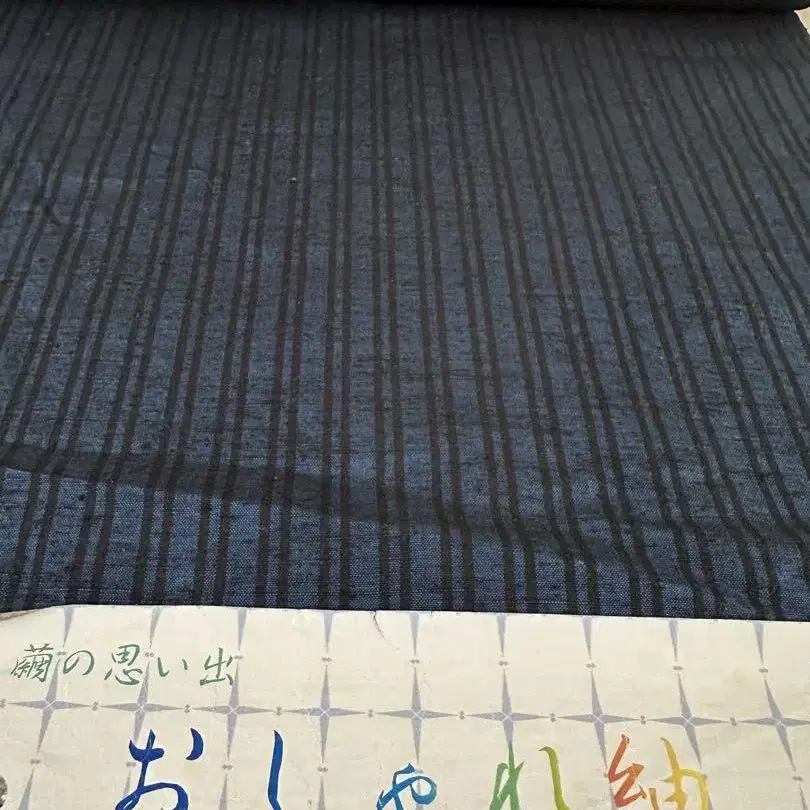 繭の思い出
おしゃれ紬